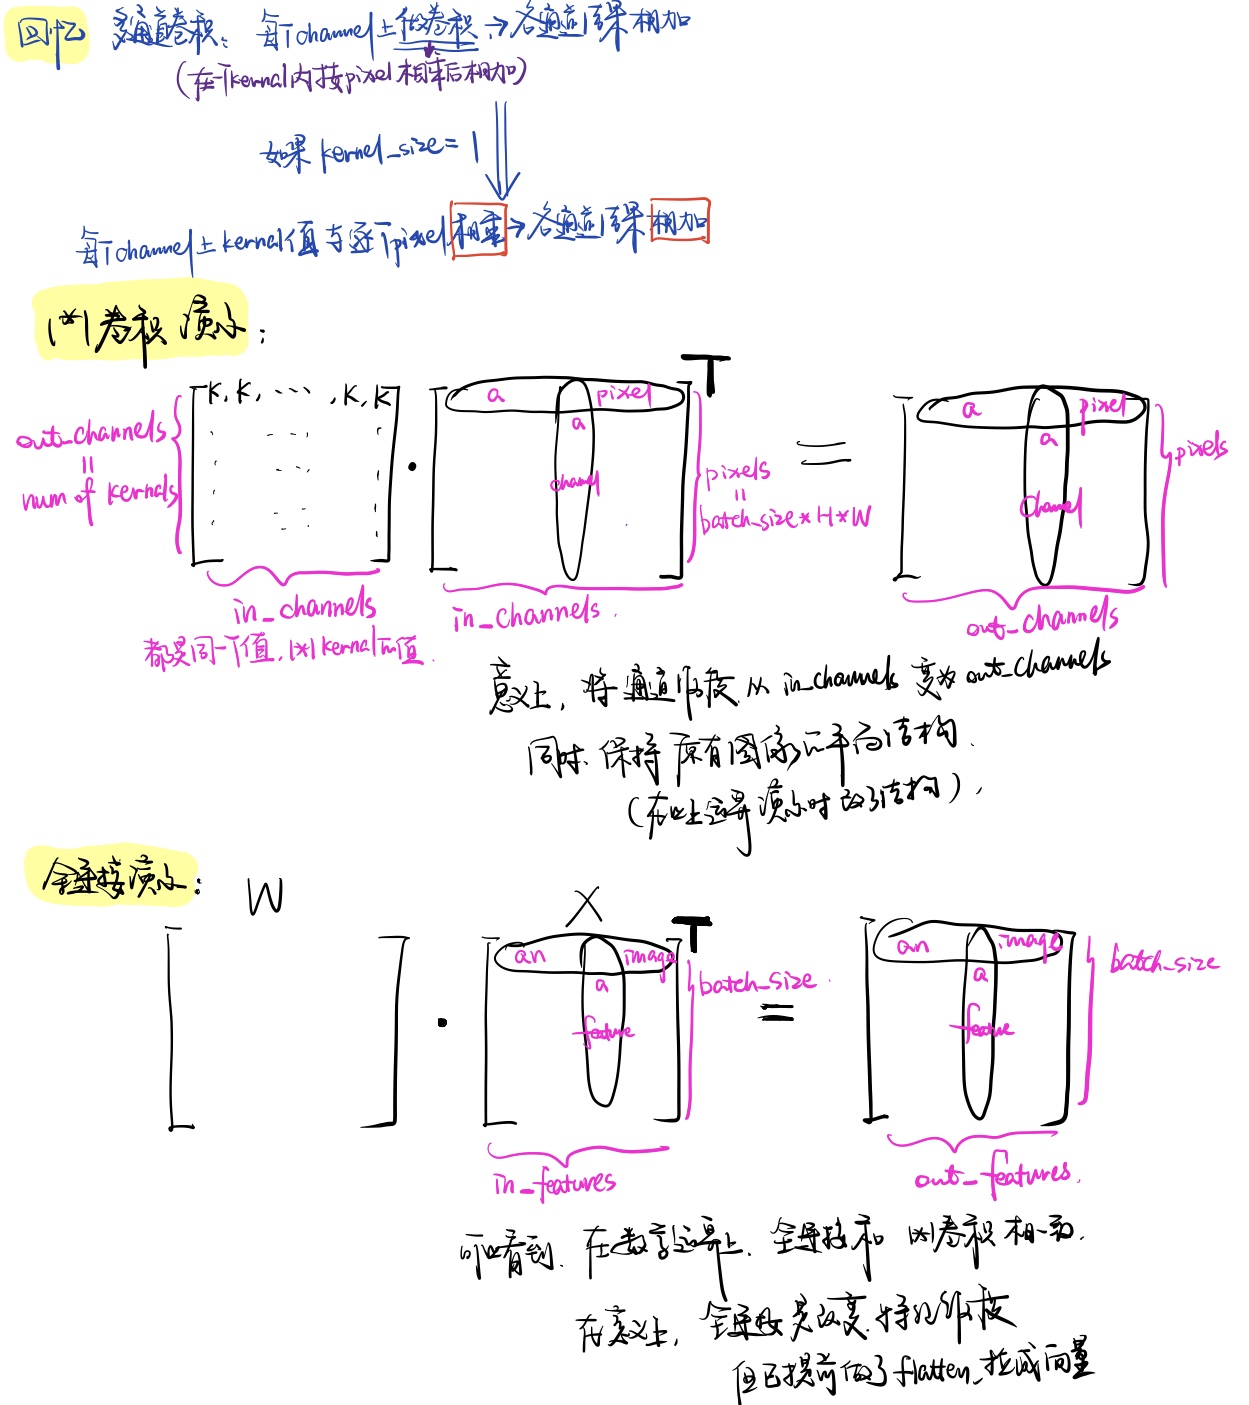 回忆 多通道卷积：每个channel上做卷积→各通道结果相加
（在一个kernal内按pixel相乘后相加）
如果 kernel_size=1
每个channel上kernal值与逐个pixel相乘→各通道结果相加
1*1卷积演示：
K, K, ... , K, K
T
a pixel
a
channel
a pixel
a
channel
out_channels
=
num of kernals
in_channels
in_channels.
pixels
=
batch_size*H*W
pixels
out_channels
都是同一个值，1*1kernal的值.
意义上，将通道维度从 in_channels 变为 out_channels
同时、保持原有图像的平面结构.
（在以上运算演示时改了结构）.
全连接演示：
W
X
T
an image
a
feature
batch_size.
=
an image
a
feature
batch_size
in_features
out_features.
可以看到.在数学运算上.全连接和 1*1卷积相一致.
在意义上，全连接是改变.特征维度
但已提前做了flatten_拉成向量